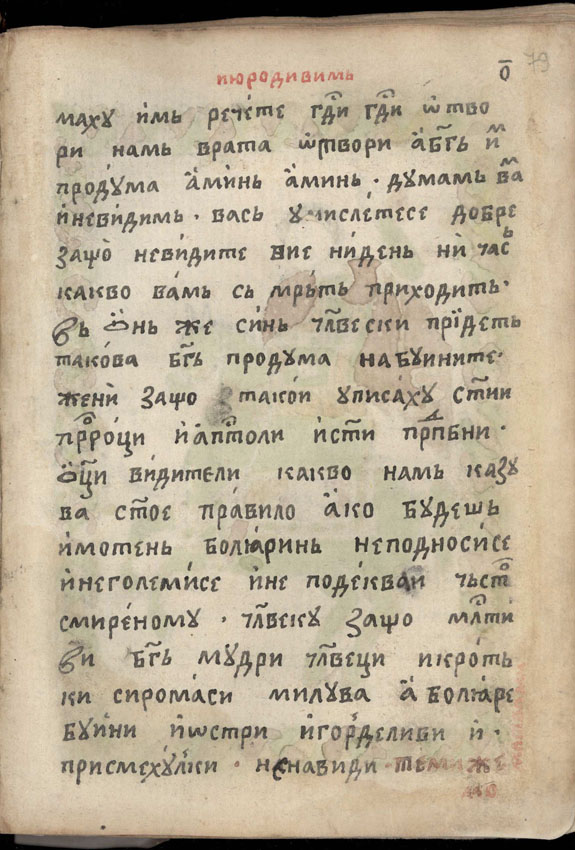 июродивимь
о҃ 79
маху имь рече́те гдⷭ҇и гдⷭ҇и ѿтво
ри намь врата ѿтвори а҆ бг҃ь иⷨ
проду́ма а҆ми́нь а҆минь · думамь ваⷨ
и҆неви́димь · вась у҆числе́тесе добре
защо̀ неви́дите вие ни́день ни̏ часъ
какво ва́мь съ мръ́ть приходить ·
вь ѻ҆нь же си́нь чл҃вески прїи́деть
тако́ва бг҃ь продума на буините ·
жени̏ защо такои у҆писа́ху ст҃ии
прⷪ҇роци и҆ апⷭ҇толи и҆ст҃и прпⷣбни ·
ѻ҆ци҃ ви́дители какво намь казу
ва ст҃ое пра́вило а҆ко бу́дешь
и҆мотень болꙗ́ринь неподноси́се
и҆неголеми́се и҆не подеква́и чьстⷪ
смире́ному · чл҃веку защо млⷭ҇ти
ви бг҃ь му́дри чл҃веци икроть
ки сирома́си милува а҆ болꙗ́ре
буи́ни и҆ѡстри и҆горделиви и҆ ·
присмеху́лки · ненавиди · теми же